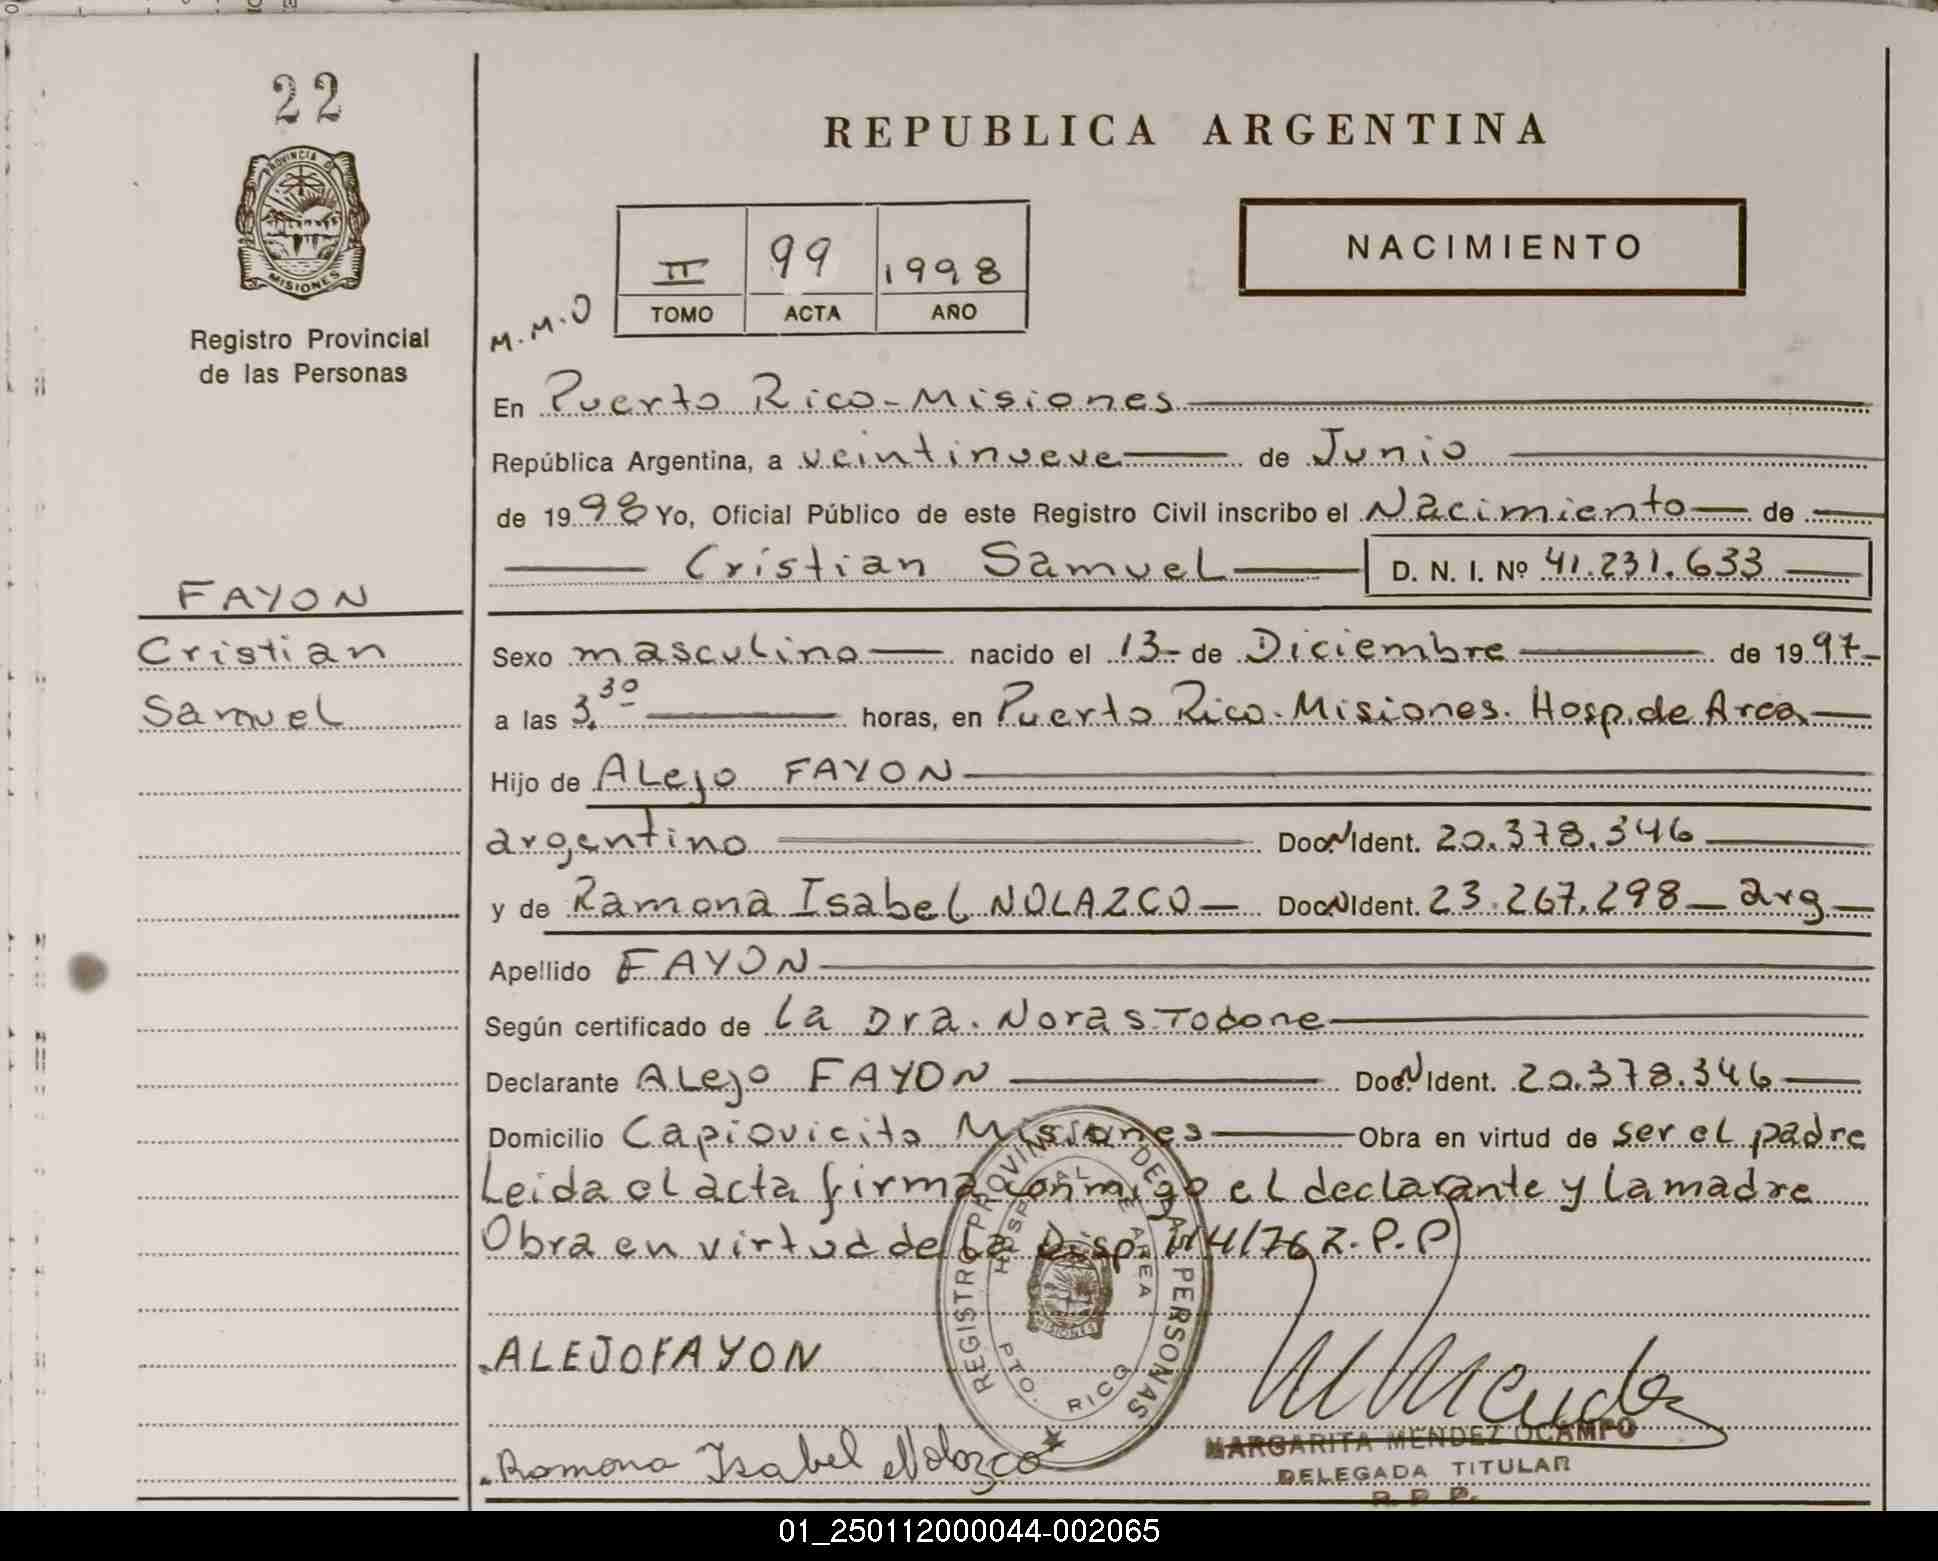 22
REPUBLICA ARGENTINA
PROVINCIA D
MISIONES
Registro Provincial
de las Personas
II 99 1998
TOMO ACTA AÑO
NACIMIENTO
M.M.O
En Puerto Rico - Misiones
República Argentina, a veintinueve de Junio
de 1998 Yo, Oficial Público de este Registro Civil inscribo el Nacimiento de
Cristian Samuel D. N. I. Nº 41.231.633
FAYON
Cristian
Samuel
Sexo masculino nacido el 13- de Diciembre de 1997-
a las 3.30 horas, en Puerto Rico. Misiones. Hosp. de Area
Hijo de ALejo FAYON
argentino Doc. N Ident. 20.378.346
y de Ramona Isabel NOLAZCO Doc. N Ident. 23.267.298 - arg
Apellido FAYON
Según certificado de La Dra. Nora S. Todone
Declarante ALejo FAYON Doc. N Ident. 20.378.346
Domicilio Capiovicito Misiones Obra en virtud de ser el padre
Leida el acta firma conmigo el declarante y la madre
Obra en virtud de La Disp. 14/76 R.P.P
REGISTRO PROVINCIAL DE LAS PERSONAS
HOSPITAL DE AREA
MISIONES
PTO. RICO
ALEJO FAYON
M Mendez
Ramona Isabel Nolazco
MARGARITA MENDEZ OCAMPO
DELEGADA TITULAR
R. P. P.
01_250112000044-002065